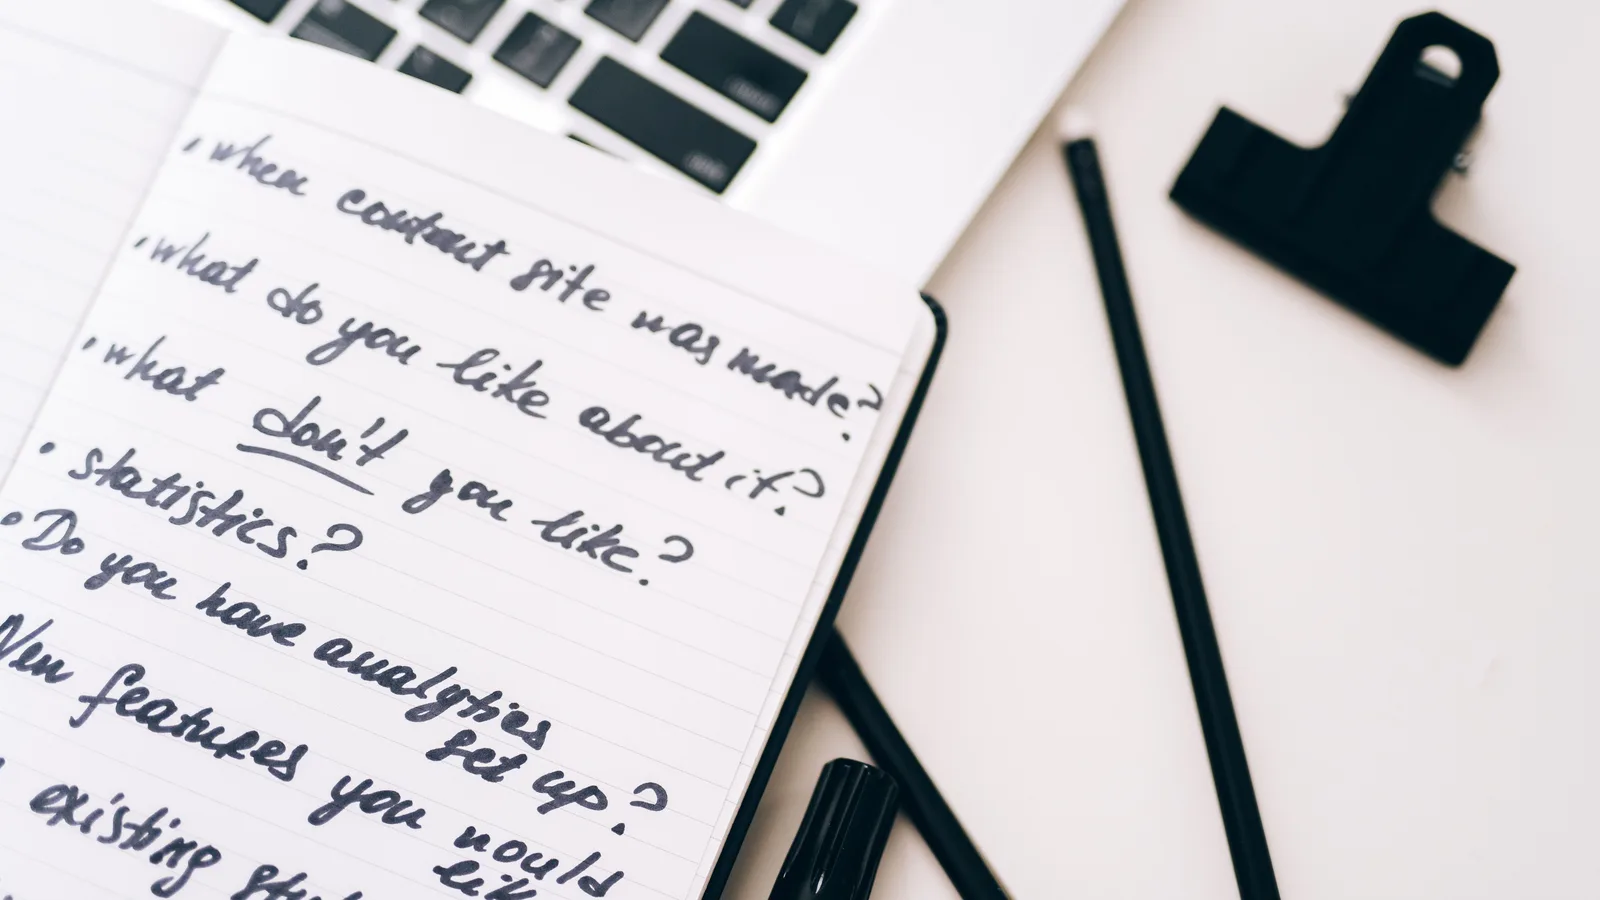 • when content site was made?
• what do you like about it?
• what don't you like?
• statistics?
• Do you have analytics
set up?
New features you would
like
existing